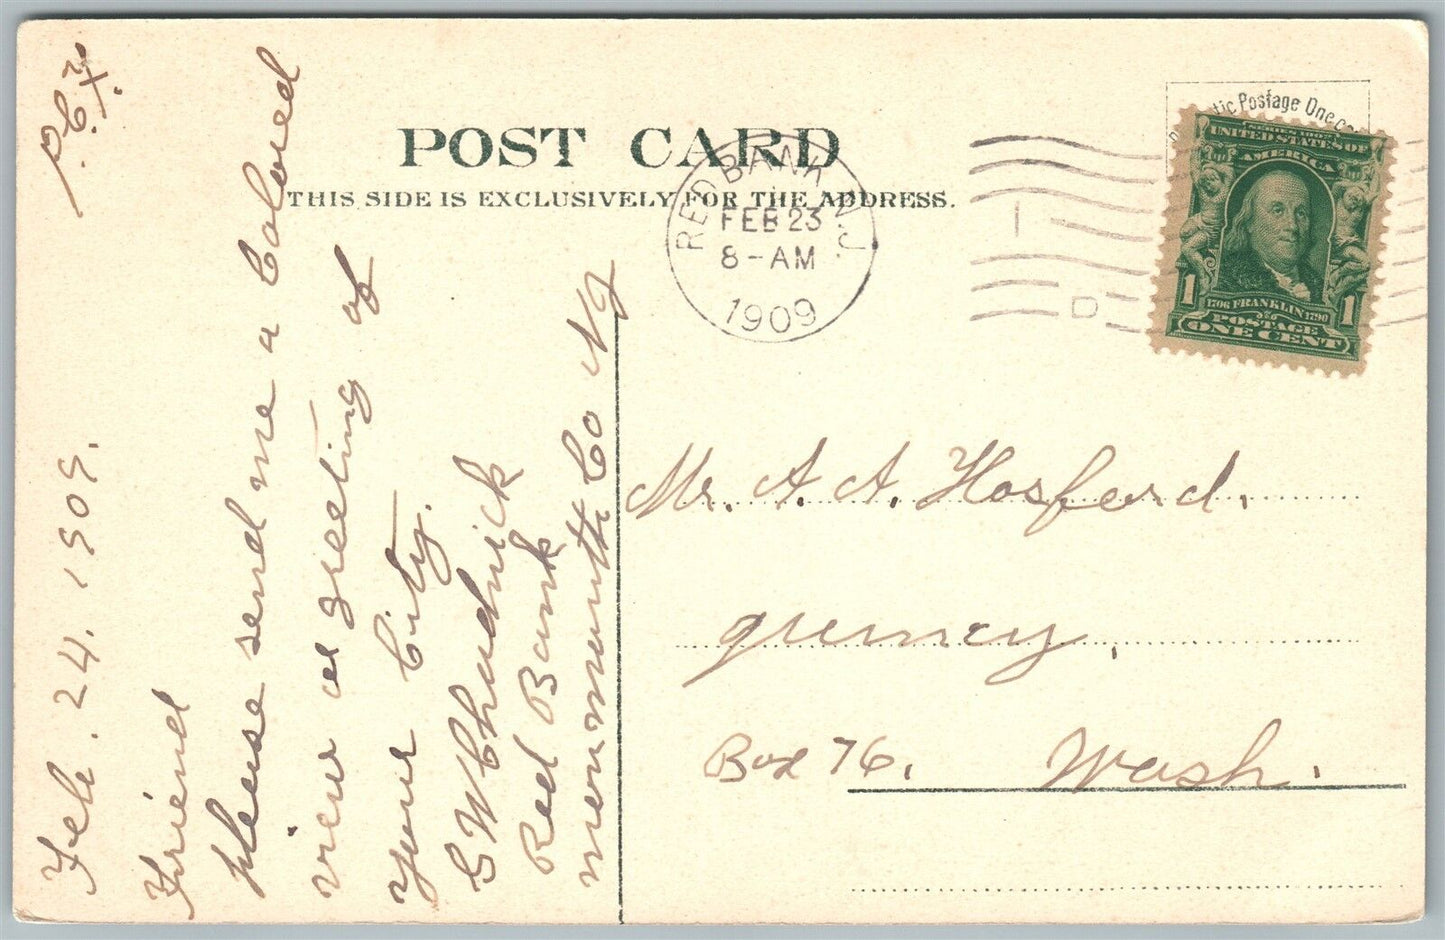 POST CARD
THIS SIDE IS EXCLUSIVELY FOR THE ADDRESS.
RED BANK N.J.
FEB 23
8-AM
1909
D
tic Postage One c
SERIES 1902
UNITED STATES OF
AMERICA
1706 FRANKLIN 1790
1 1
POSTAGE
ONE CENT
Feb. 24. 1909.
Friend
please send me a Colored
view as greeting of
your City.
G W Chadwick
Red Bank
monmouth Co NJ
Mr. A. A. Hosferd.
Box 76. Wash.